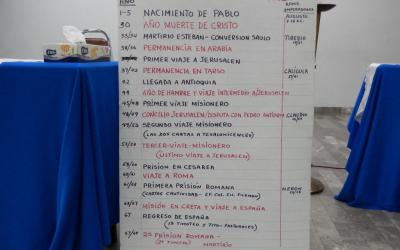 AÑO
1-5 NACIMIENTO DE PABLO
30 AÑO MUERTE DE CRISTO
33/34 MARTIRIO ESTEBAN-CONVERSION SAULO
PERMANENCIA EN ARABIA
PRIMER VIAJE A JERUSALEN
PERMANENCIA EN TARSO
42 LLEGADA A ANTIOQUIA
44 AÑO DE HAMBRE Y VIAJE INTERMEDIO A JERUSALEN
45/48 PRIMER VIAJE MISIONERO
48/49 CONCILIO JERUSALEN/DISPUTA CON PEDRO ANTIOQUIA
49/52 SEGUNDO VIAJE MISIONERO
(LAS DOS CARTAS A TESALONICENSES)
TERCER-VIAJE-MISIONERO
(ÚLTIMO VIAJE A JERUSALEN)
PRISION EN CESAREA
VIAJE A ROMA
PRIMERA PRISIÓN ROMANA
(CARTAS CAUTIVIDAD-EF. COL. FIL. FILEMON)
MISIÓN EN CRETA Y VIAJE A ESPAÑA
67 REGRESO DE ESPAÑA
(1ª TIMOTEO Y TITO-PASTORALES)
2ª PRISION ROMANA-
MARTIRIO
AUGUSTO
TIBERIO
CALÍGULA
CLAUDIO
NERON